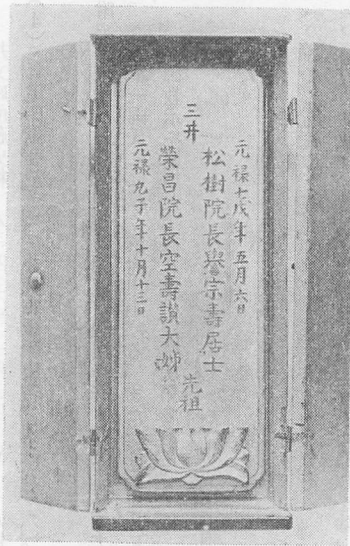 元禄七戌年五月六日
松樹院長譽宗壽居士
三井
先祖
榮昌院長空壽讃大姉
元禄九子年十月十三日